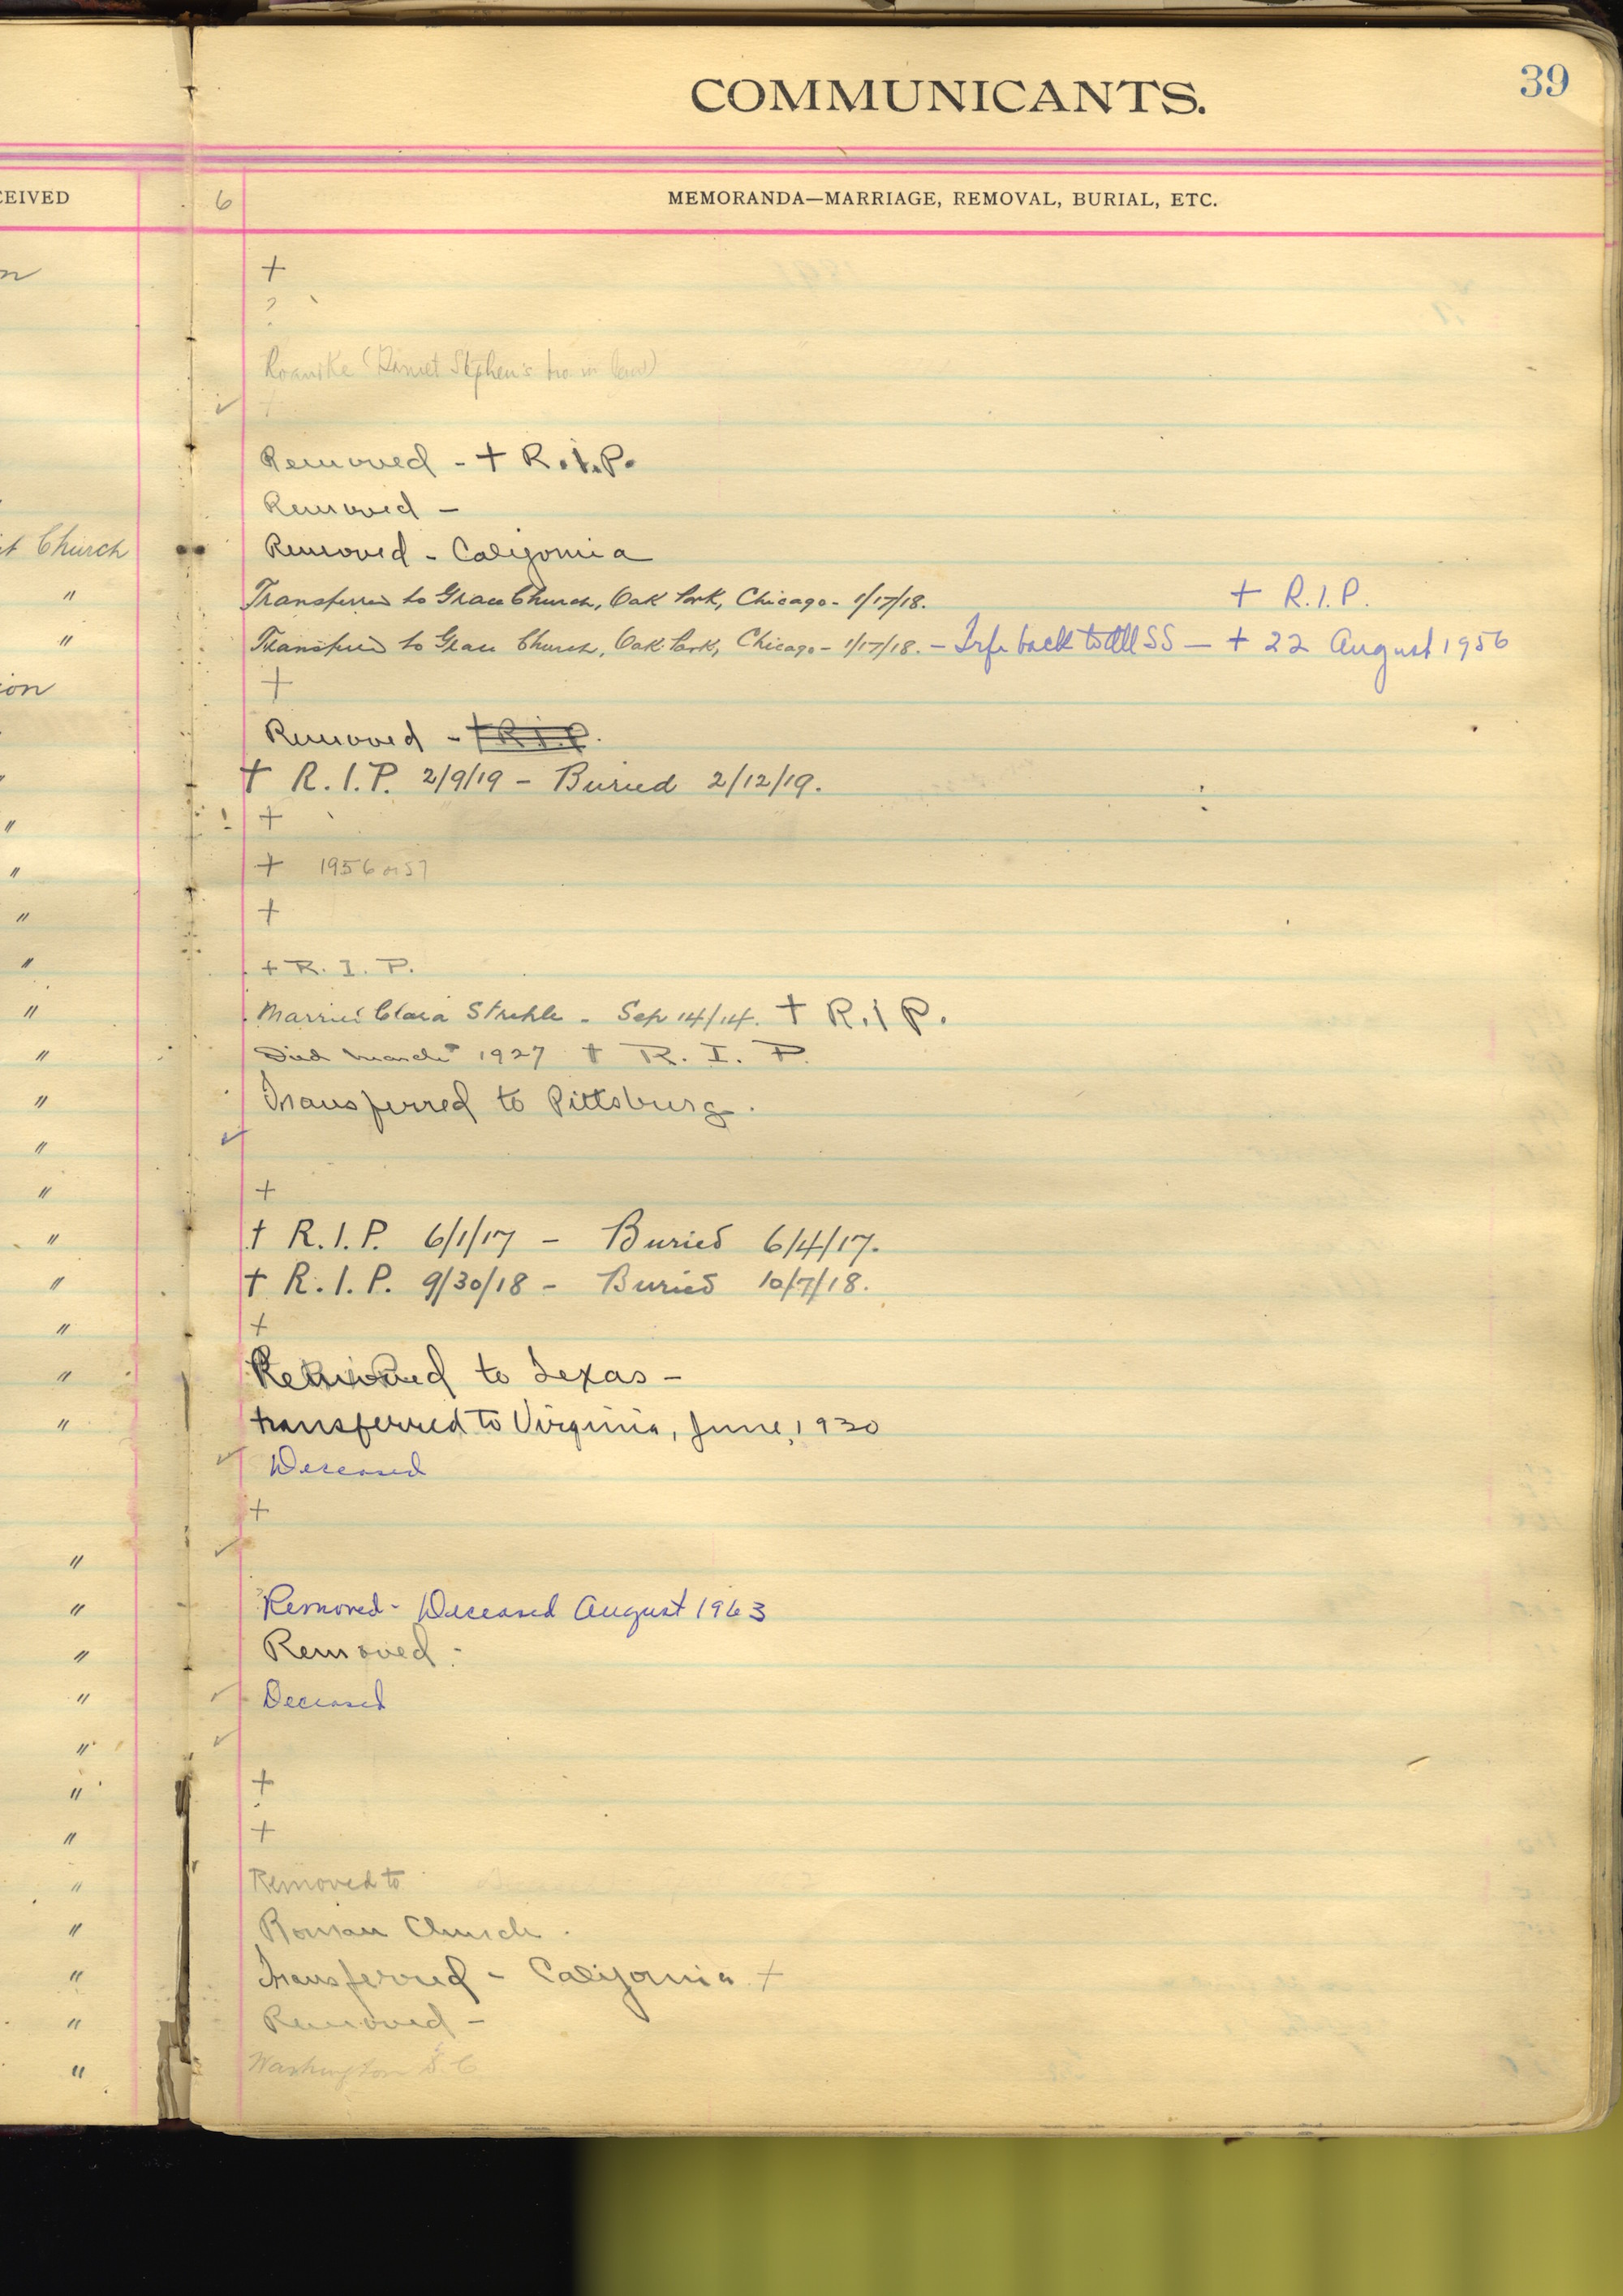 COMMUNICANTS.
39
CEIVED
6
MEMORANDA—MARRIAGE, REMOVAL, BURIAL, ETC.
+
?
Roanoke (Stephen's bro in law)
✓
Removed - + R.I.P.
Removed -
Church Removed - California
" Transferred to Grace Church, Oak Park, Chicago - 1/17/18. + R.I.P.
" Transferred to Grace Church, Oak Park, Chicago - 1/17/18. - Trfr back to All SS - + 22 August 1956
ion +
Removed - + R.I.P.
+ R.I.P. 2/9/19 - Buried 2/12/19.
" ! +
" + 1956 or 57
" +
" + R. I. P.
" Married Clara Strehle - Sep 14/14. + R.I.P.
" Died March 1927 + R. I. P.
" Transferred to Pittsburg.
" ✓
" +
" + R.I.P. 6/1/17 - Buried 6/4/17.
" + R.I.P. 9/30/18 - Buried 10/7/18.
" +
" Removed to Texas -
" transferred to Virginia, June, 1930
✓ Deceased
+
" ✓
" Removed - Deceased August 1963
" Removed -
" ✓ Deceased
" ✓
" +
" +
" Removed to
" Roman Church.
" Transferred - California +
" Removed -
" Washington D.C